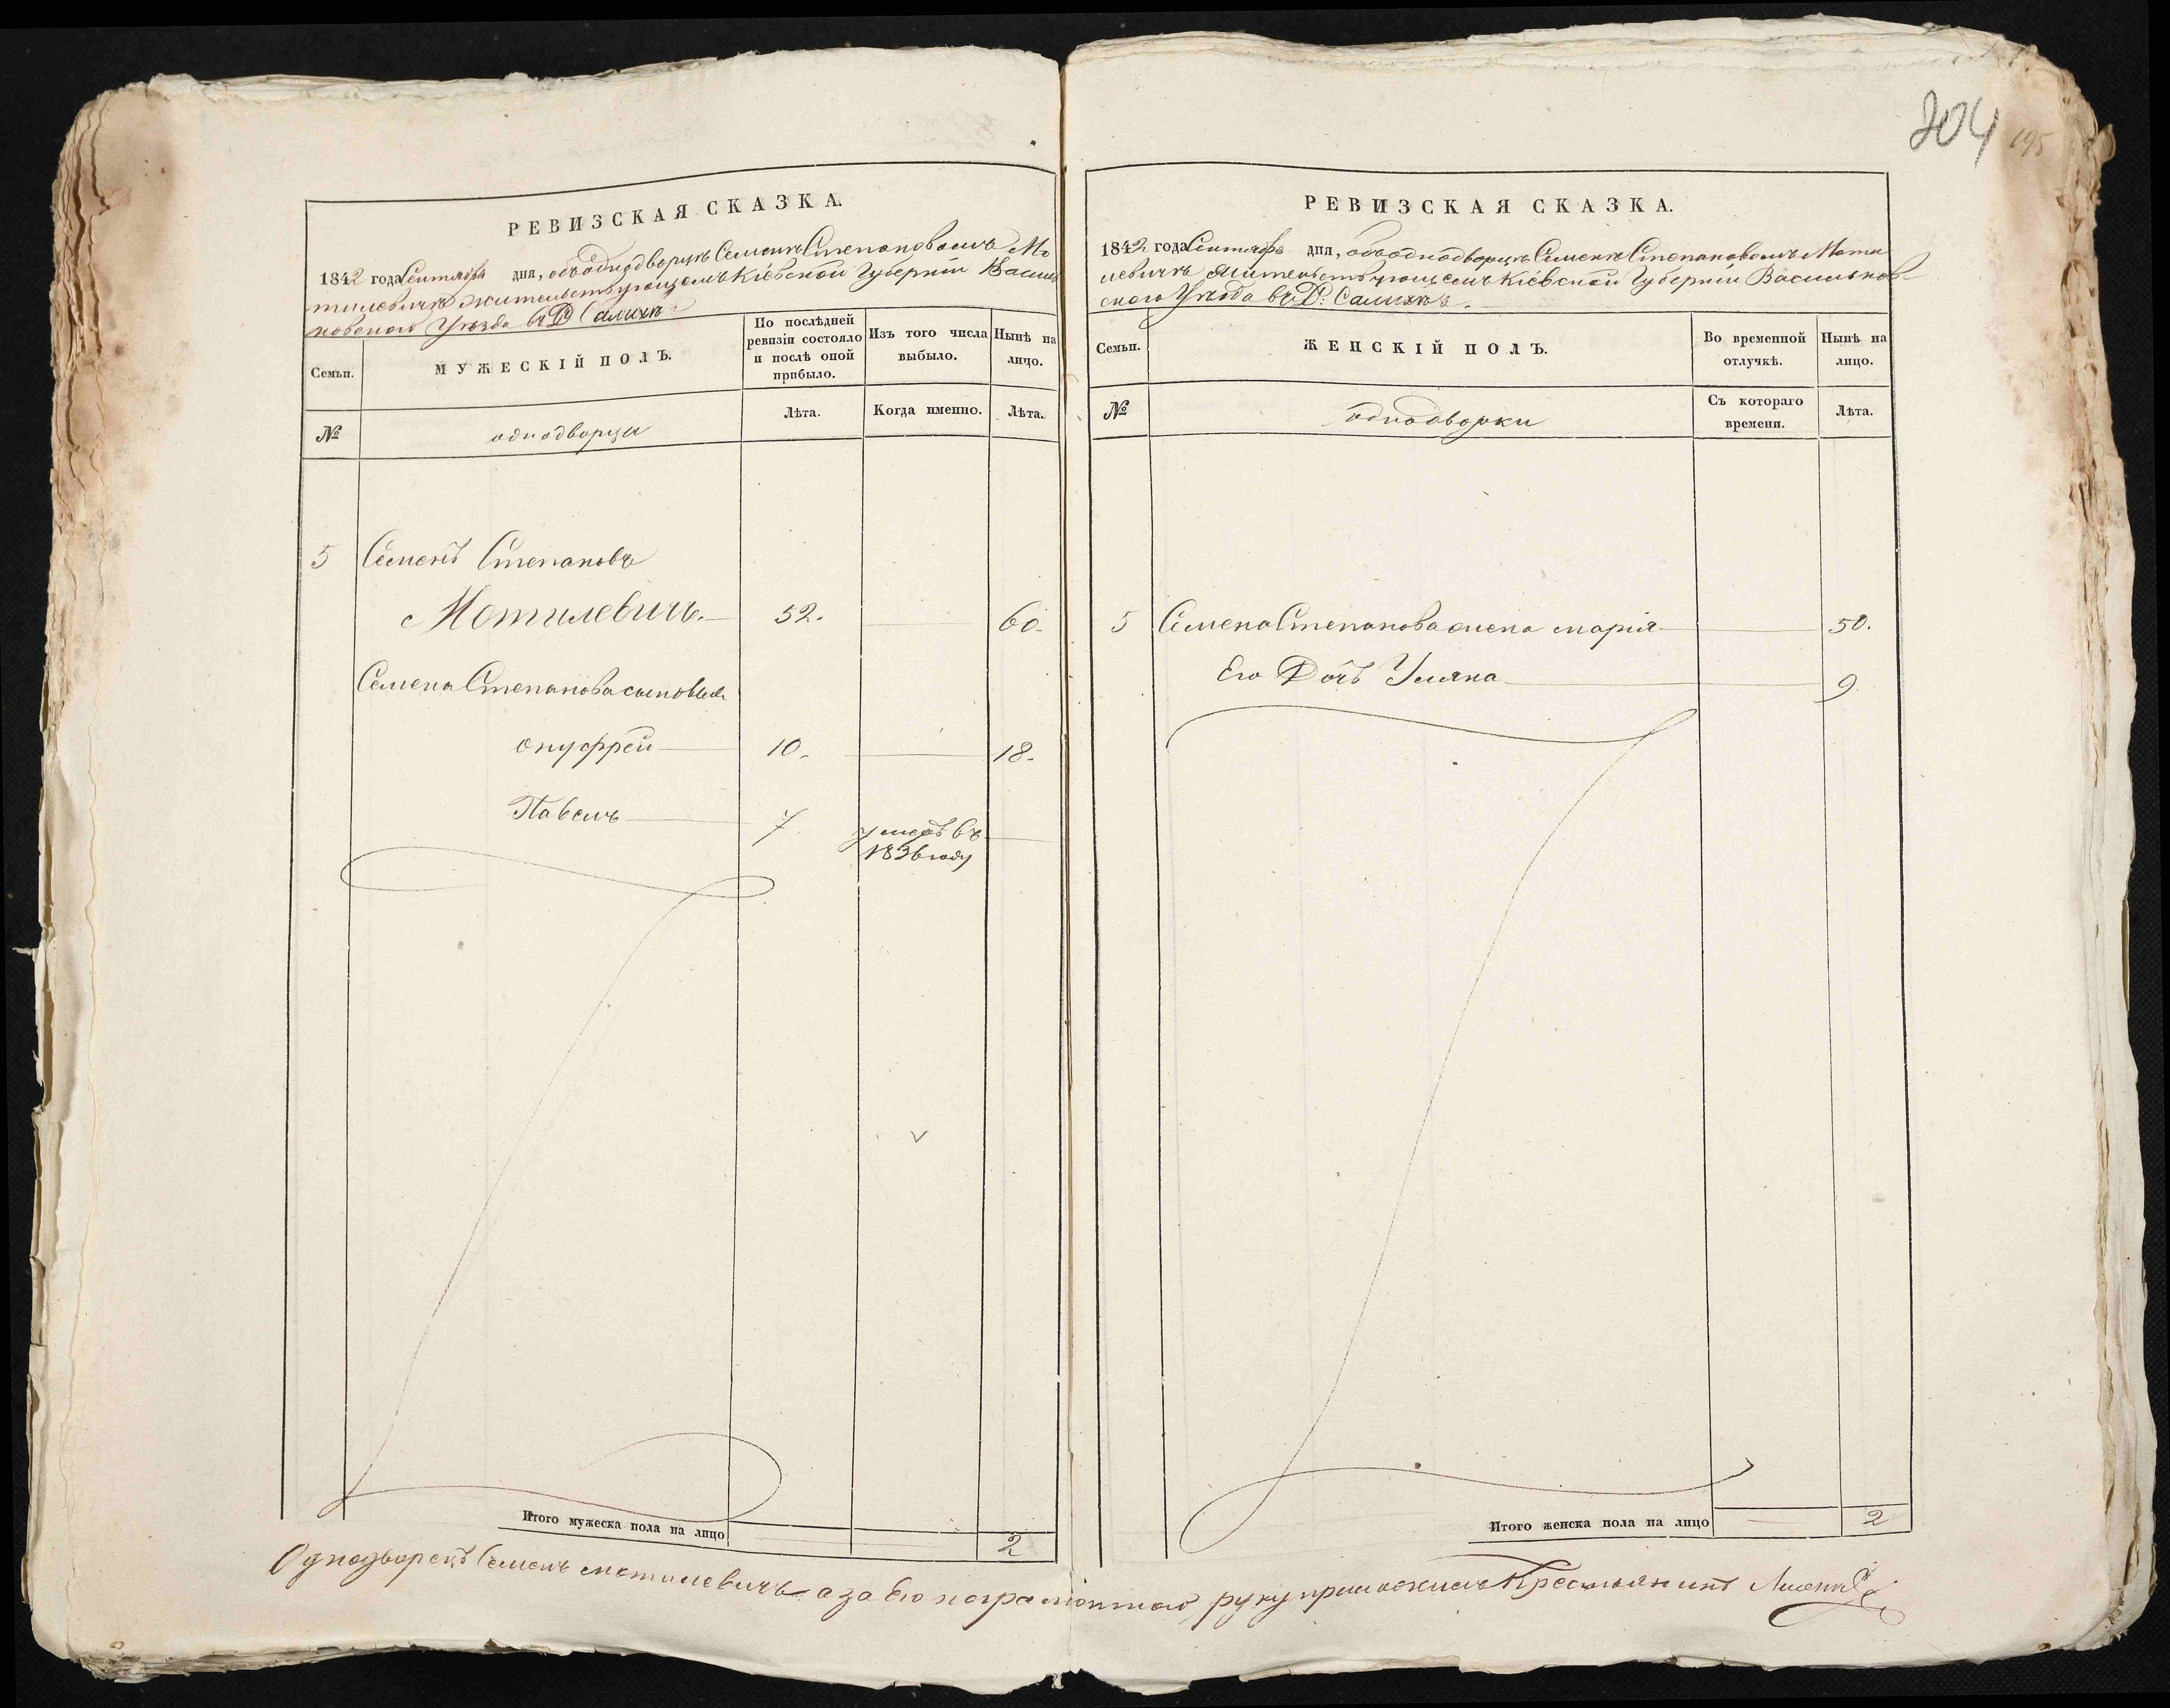 РЕВИЗСКАЯ СКАЗКА.
1842 года Сентября дня, объ однодворцѣ Семенѣ Степановомъ Мо
тилевичѣ жительствующемъ Кіевской Губерніи Василь
ковскаго Уѣзда въ Д.
По послѣдней ревизіи состояло и послѣ оной прибыло.
Изъ того числа выбыло.
Нынѣ на лицо.
Семьи.
МУЖЕСКІЙ ПОЛЪ.
Лѣта.
Когда именно.
Лѣта.
№
однодворцы
5 Семенъ Степановъ
Мотилевичъ. 52. 60.
Семена Степанова сыновья
онуфрей 10. 18.
Павелъ 7 умеръ въ
1836 году
Итого мужеска пола на лицо 2
204
195
РЕВИЗСКАЯ СКАЗКА.
1842 года Сентября дня, объ однодворцѣ Семенѣ Степановомъ Моти
левичѣ жительствующемъ Кіевской Губерніи Васильков
скаго Уѣзда въ Д:
Семьи.
ЖЕНСКІЙ ПОЛЪ.
Во временной отлучкѣ.
Нынѣ на лицо.
№
однодворки
Съ котораго времени.
Лѣта.
5 Семена Степанова жена марія 50.
Его Дочь Уляна 9
Итого женска пола на лицо 2
Однодворецъ Семенъ мотилевичъ а за Его неграмотнаго руку приложилъ Крестьянинъ